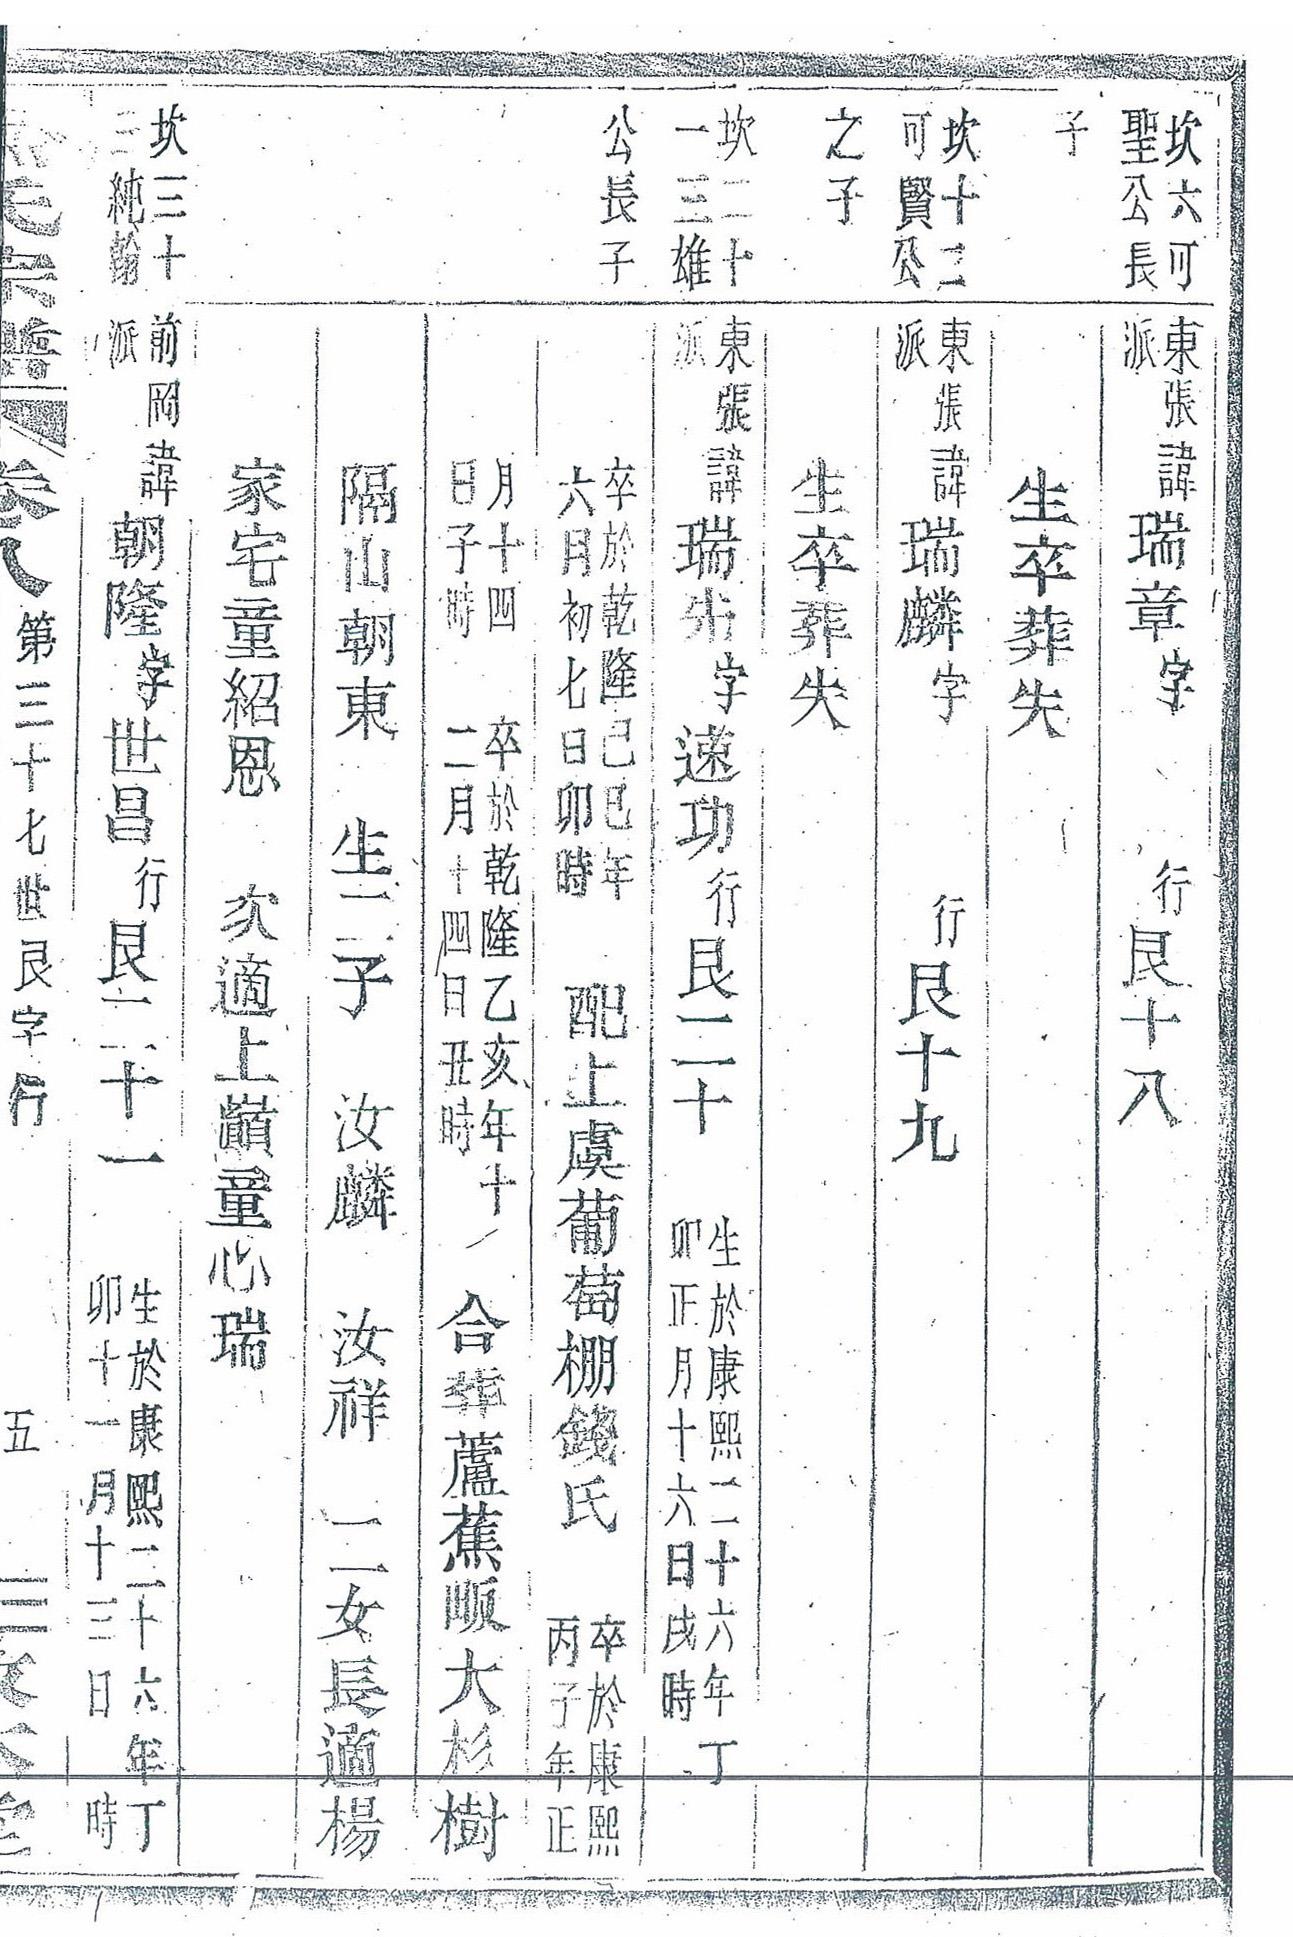 坎六可
聖公長
子
東張諱瑞章字 行艮十八
派
生卒葬失
坎十二
可賢公
之子
東張諱瑞麟字 行艮十九
派
生卒葬失
坎二十
一三雄
公長子
東張諱瑞先字速功行艮二十 生於康熙二十六年丁
派
卯正月十六日戌時
卒於乾隆己巳年
六月初七日卯時
配上虞葡萄棚錢氏 卒於康熙
丙子年正
月十四
日子時
卒於乾隆乙亥年十
二月十四日丑時
合葬蘆蕉畈大杉樹
隔山朝東 生二子 汝麟 汝祥 二女長適楊
家宅童紹恩 次適上巔童心瑞
坎三十
三純翰
前岡諱朝隆字世昌行艮二十一 生於康熙二十六年丁
派
卯十一月十三日 時
氏宗譜 卷八 第三十七世艮字行 五